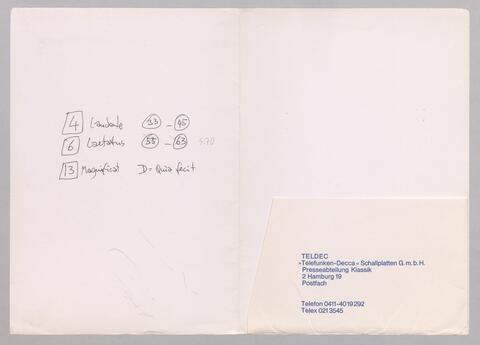 4 Laudate 33 – 45
6 Laetatus 55 – 63 570
13 Magnificat D= Quia fecit
TELDEC
»Telefunken-Decca« Schallplatten G.m.b.H.
Presseabteilung Klassik
2 Hamburg 19
Postfach
Telefon 0411-4019292
Telex 0213545